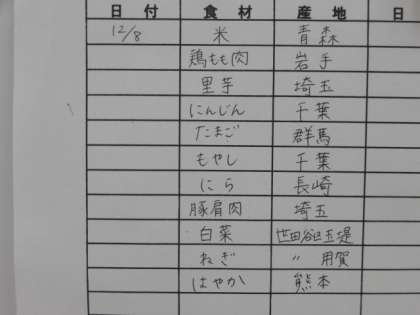 日 付 食 材 産 地 日
12/8 米 青森
鶏もも肉 岩手
里芋 埼玉
にんじん 千葉
たまご 群馬
もやし 千葉
にら 長崎
豚肩肉 埼玉
白菜 世田谷区玉堤
ねぎ 〃 用賀
はやか 熊本